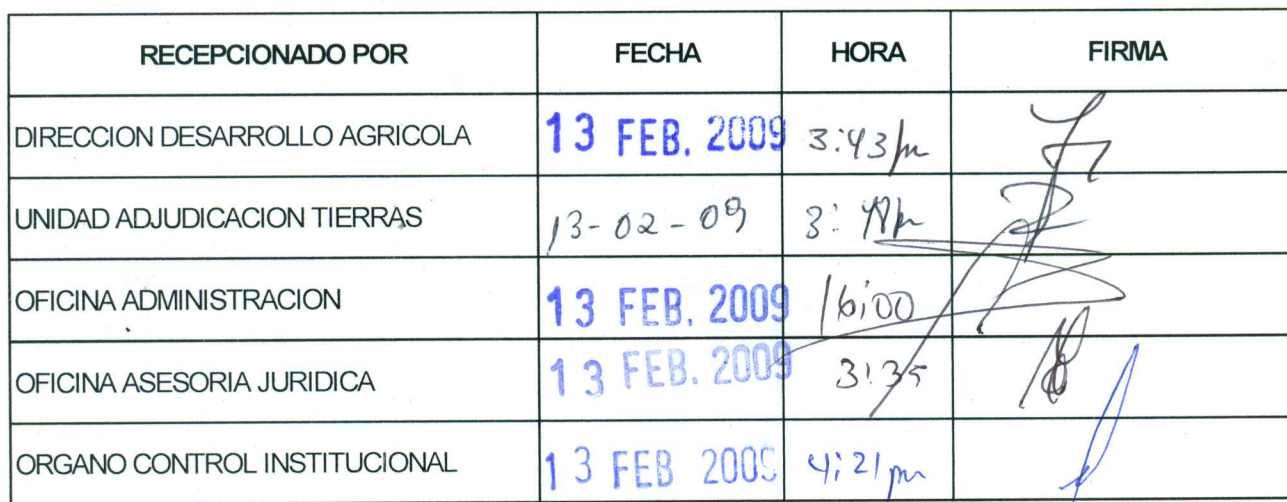 RECEPCIONADO POR FECHA HORA FIRMA
DIRECCION DESARROLLO AGRICOLA 13 FEB. 2009 3:43pm
UNIDAD ADJUDICACION TIERRAS 13-02-09
OFICINA ADMINISTRACION 13 FEB. 2009 16:00
OFICINA ASESORIA JURIDICA 13 FEB. 2009 3:35
ORGANO CONTROL INSTITUCIONAL 13 FEB 2009 4:21 pm